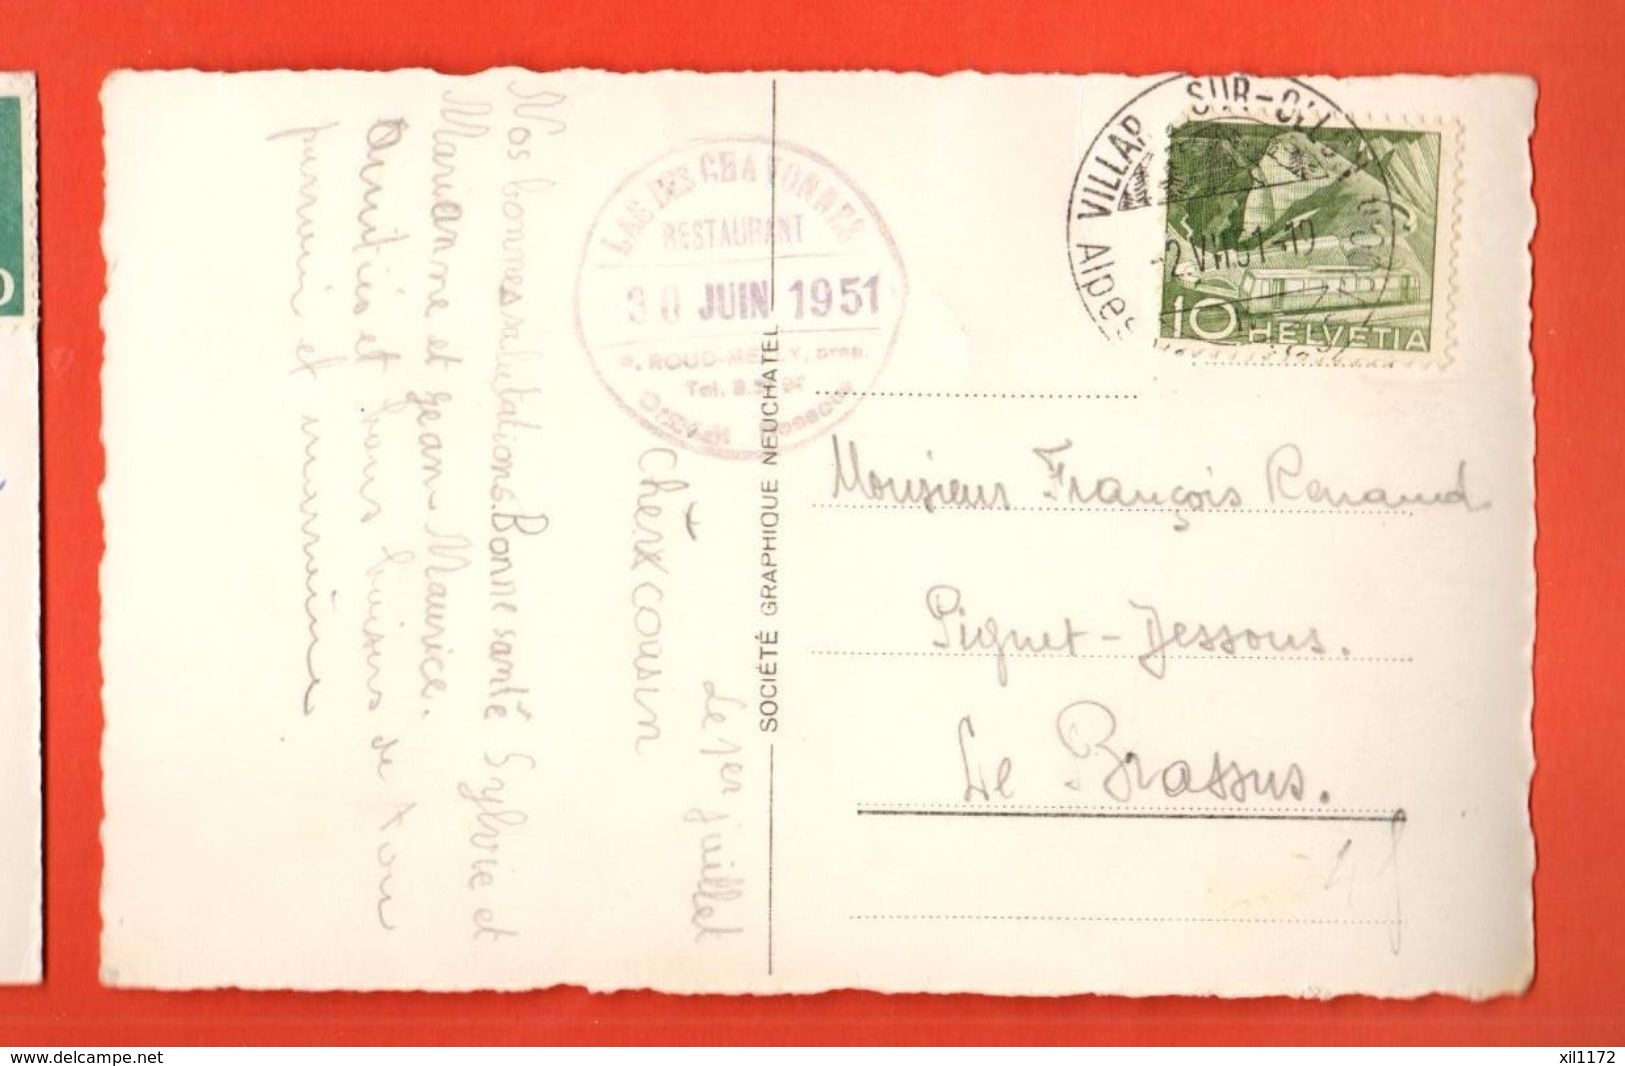 Le 1er juillet
Chèrx cousin
Nos bonnes salutations. Bonne santé Sylvie et
Marianne et Jean Maurice.
Amitiés et bons baisers de ton
parrain et marraine
LAC DES CHAVONNES
RESTAURANT
30 JUIN 1951
Tel.
SOCIÉTÉ GRAPHIQUE NEUCHATEL
VILLAR SUR-OLLON
Alpes
-2.VII.51-19
10 HELVETIA
Monsieur François Renaud
Piguet-Dessous.
Le Brassus.
www.delcampe.net
xil1172